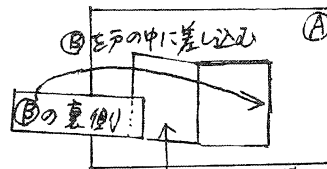 Ⓑを戸の中に差し込む
Ⓐ
Ⓑの裏側